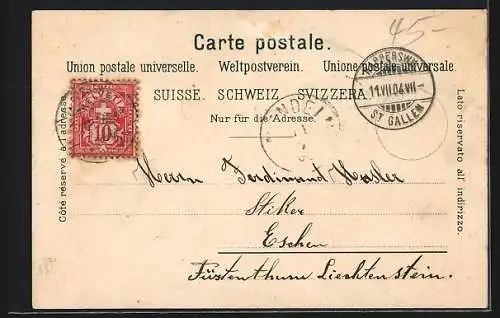 45-
Carte postale.
Union postale universelle. Weltpostverein. Unione postale universale.
SUISSE. SCHWEIZ. SVIZZERA.
Nur für die Adresse.
Côté réservé à l'adresse.
Lato riservato all' indirizzo.
HELVETIA
10
RAPPERSWYL
11.VII.04.VII-
ST GALLEN
NENDELN
Herrn Ferdinand
Eschen
Fürstenthum Liechtenstein.